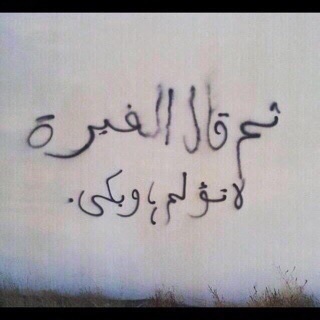 ثم قال الغيرة
لا تؤلم ! وبكى .